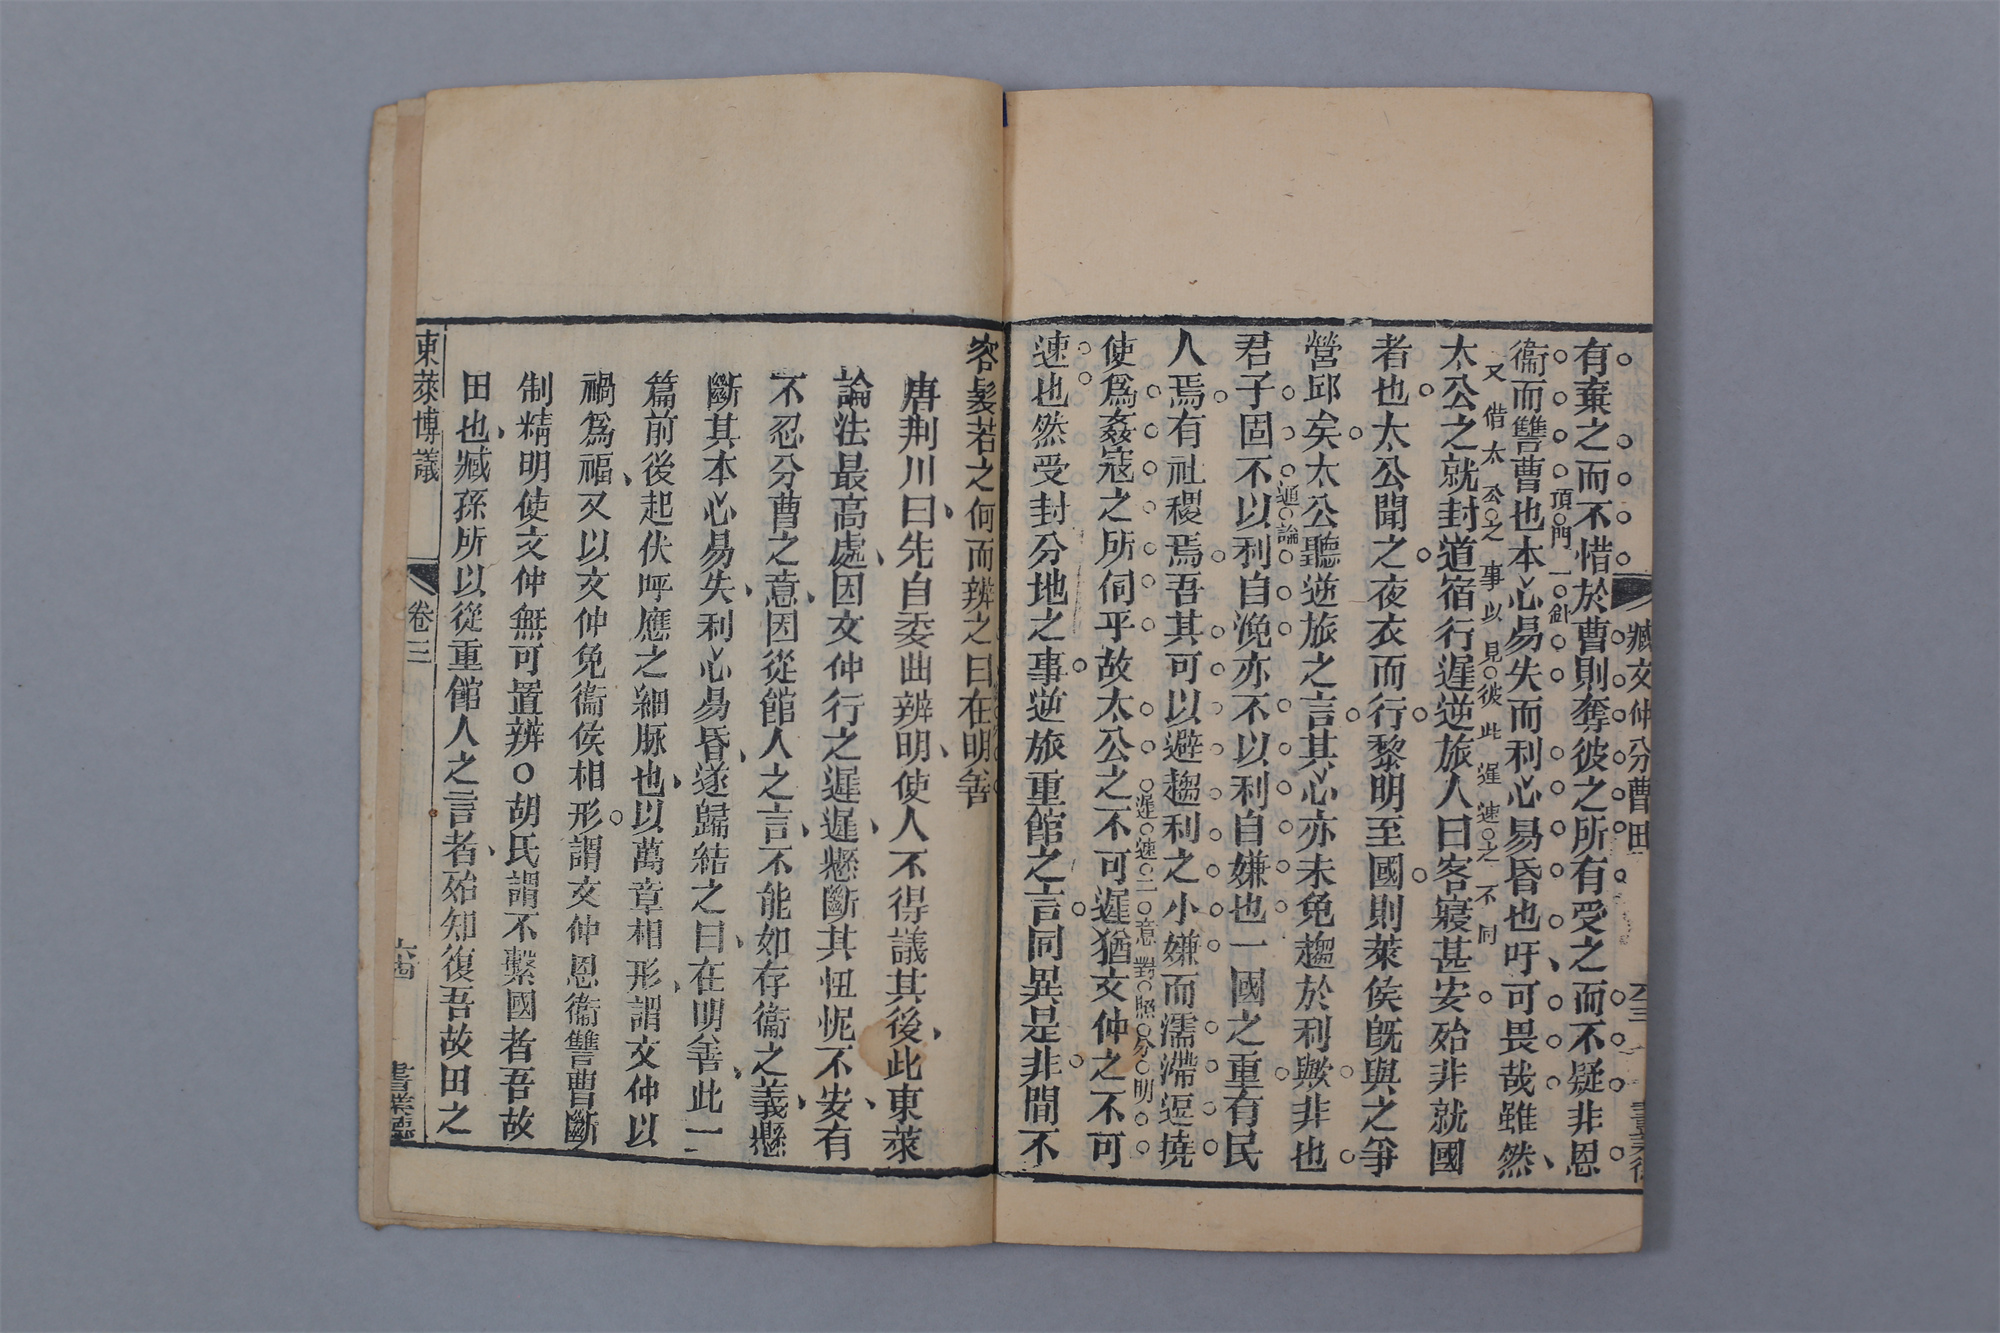 臧文仲分曹田
有棄之而不惜於曹則奪彼之所有受之而不疑非恩
頂門一針
衞而讐曹也本心易失而利心易昏也吁可畏哉雖然
又借太公之事以見彼此遲速之不同
太公之就封道宿行遲逆旅人曰客寢甚安殆非就國
者也太公聞之夜衣而行黎明至國則萊侯旣與之爭
營邱矣太公聽逆旅之言其心亦未免趨於利歟非也
通論
君子固不以利自浼亦不以利自嫌也一國之重有民
人焉有社稷焉吾其可以避趨利之小嫌而濡滯逗撓
遲速二意對照分明
使爲姦寇之所伺乎故太公之不可遲猶文仲之不可
速也然受封分地之事逆旅重館之言同異是非間不
容髮若之何而辨之曰在明善
唐荆川曰先自委曲辨明使人不得議其後此東萊
論法最高處因文仲行之遲遲懸斷其忸怩不安有
不忍分曹之意因從館人之言不能如存衞之義懸
斷其本心易失利心易昏遂歸結之曰在明善此一
篇前後起伏呼應之細脉也以萬章相形謂文仲以
禍爲福又以文仲免衞侯相形謂文仲恩衞讐曹斷
制精明使文仲無可置辨○胡氏謂不繫國者吾故
田也臧孫所以從重館人之言者殆知復吾故田之
東萊博議
卷三
六四
書業德